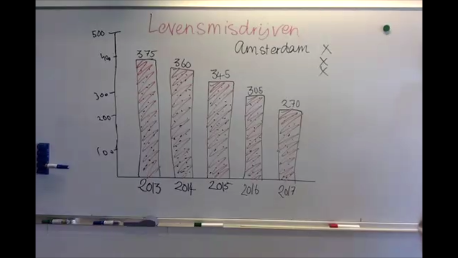 Levensmisdrijven
Amsterdam X
X
X
500
300
200
100
375
360
345
305
270
2013
2014
2015
2016
2017